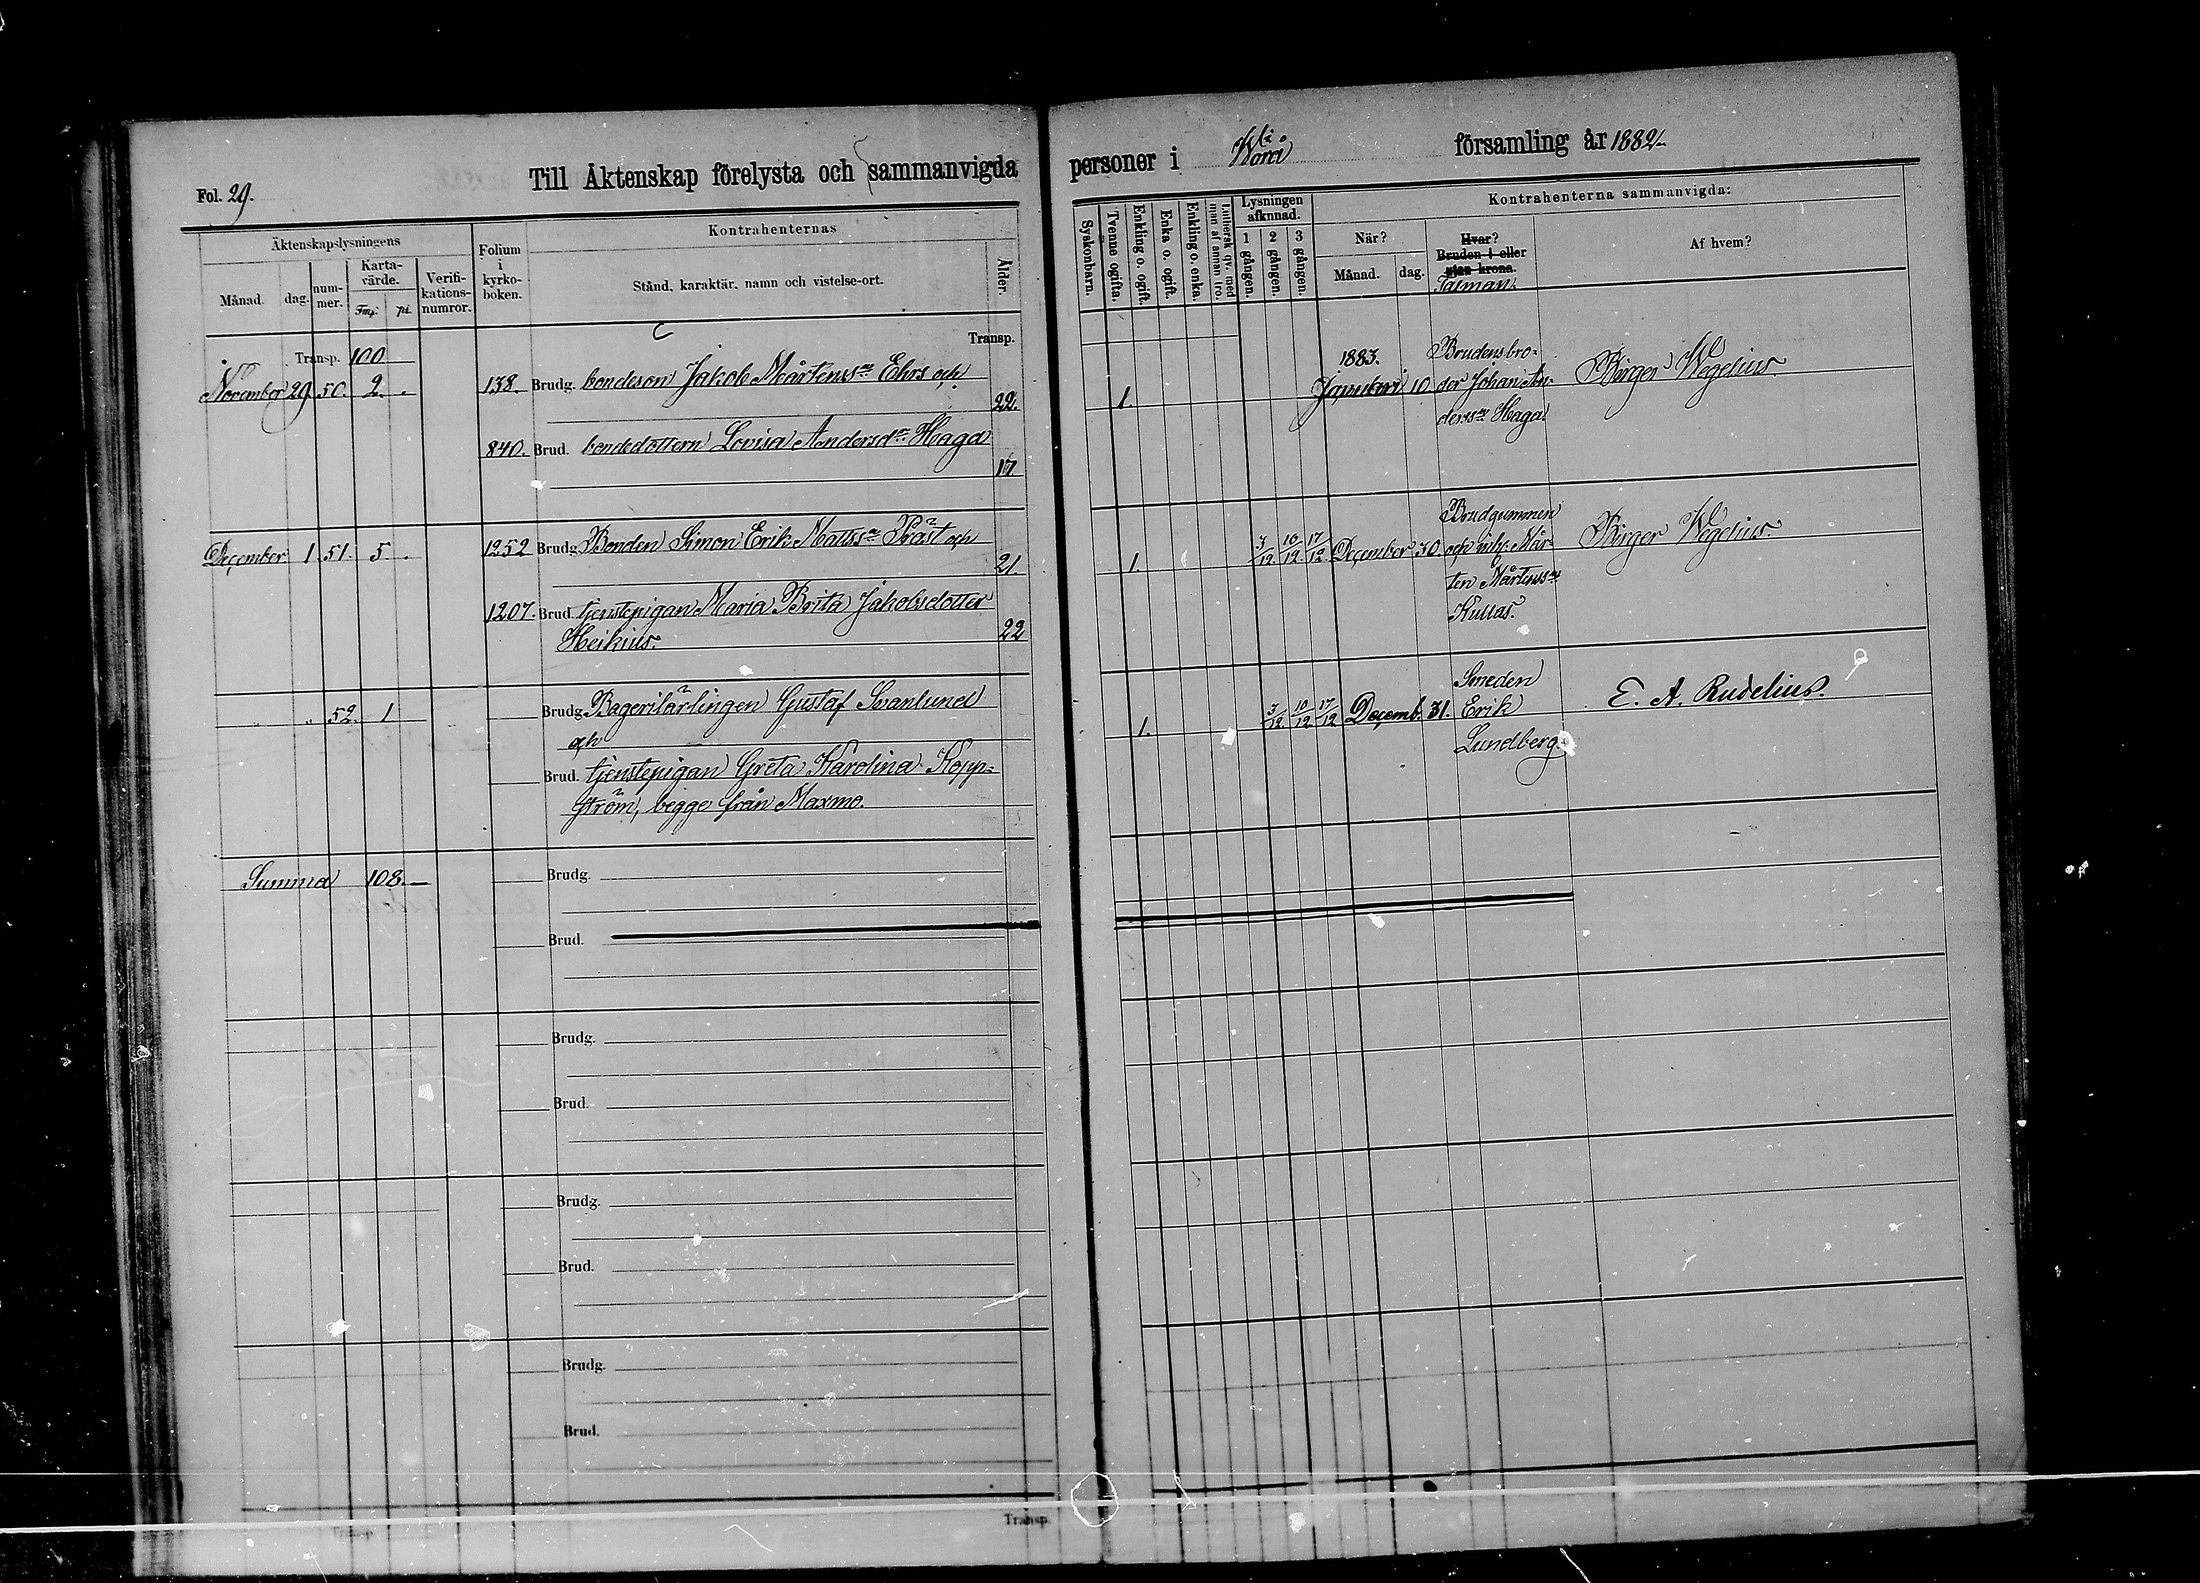 Fol. 29.
Till Äktenskap förelysta och sammanvigda
Äktenskapslysningens
Folium i kyrko-boken.
Kontrahenternas
Månad.
dag.
num-mer.
Karta-värde.
Fmp. pi.
Verifi-kations-numror.
Stånd, karaktär, namn och vistelse-ort.
Ålder.
Transp. 100
Transp.
November 29. 50. 2. . 138. Brudg. bondeson Jakob Mårtensson Ehrs och
22.
840. Brud. bondedottern Lovisa Andersdr Haga
17
December 1 51. 5 . 1252 Brudg. Bonden Simon Erik Matsson Präst och
21.
1207. Brud. tjenstepigan Maria Brita Jakobsdotter
Heikius. 22
" " 52. 1 Brudg. Bagerilärlingen Gustaf Svanlund
och
Brud. tjenstepigan Greta Karolina Kopp=
ström, begge från Maxmo.
Summa 108. — Brudg.
Brud.
Brudg.
Brud.
Brudg.
Brud.
Brudg.
Brud.
Transp. Transp.
personer i Wörå församling år 1882.
Syskonbarn.
Tvenne ogifta.
Enkling o. ogift.
Enka o. ogift.
Enkling o. enka.
Luthersk qv. med man af annan tro.
Lysningen afkunnad.
1 gången.
2 gången.
3 gången.
Kontrahenterna sammanvigda:
När?
Månad.
dag.
Hvar?
Bruden i eller
utan krona.
Talman.
Af hvem?
1883. Brudens bro=
1. Januari 10. der Johan An= Birger Wegelius.
dersson Haga.
Brudgummen
1. 3/12. 10/12. 17/12 December 30. och Mår= Birger Wegelius.
ten Mårtensson
Kullas.
Smeden
1. 3/12. 10/12. 17/12 Decemb. 31. Erik E. A. Rudelius.
Lundberg.